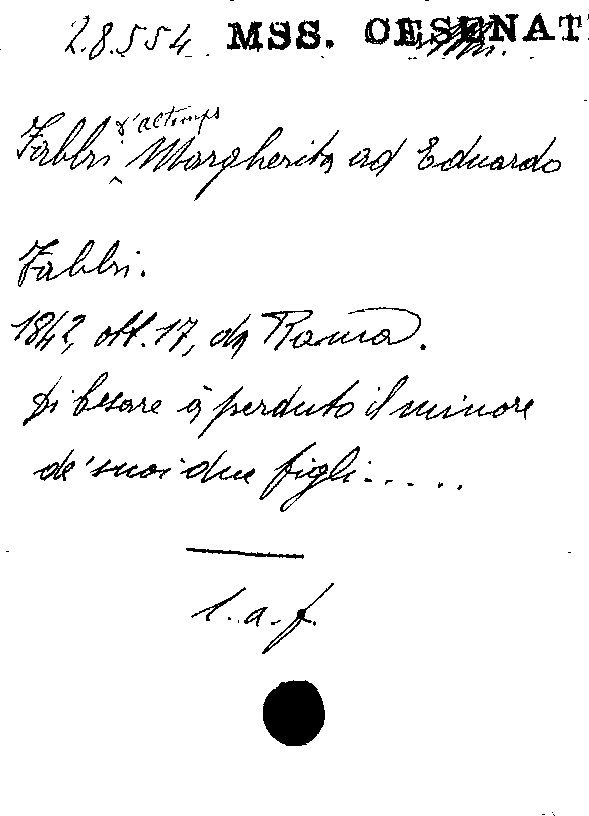 2.8.554. MSS. CESENATI
d'altemps
Fabbri Margherita ad Eduardo
Fabbri.
1842, ott. 17, da Roma.
Di Cesare à perduto il minore
de' suoi due figli.....
l.a.f.